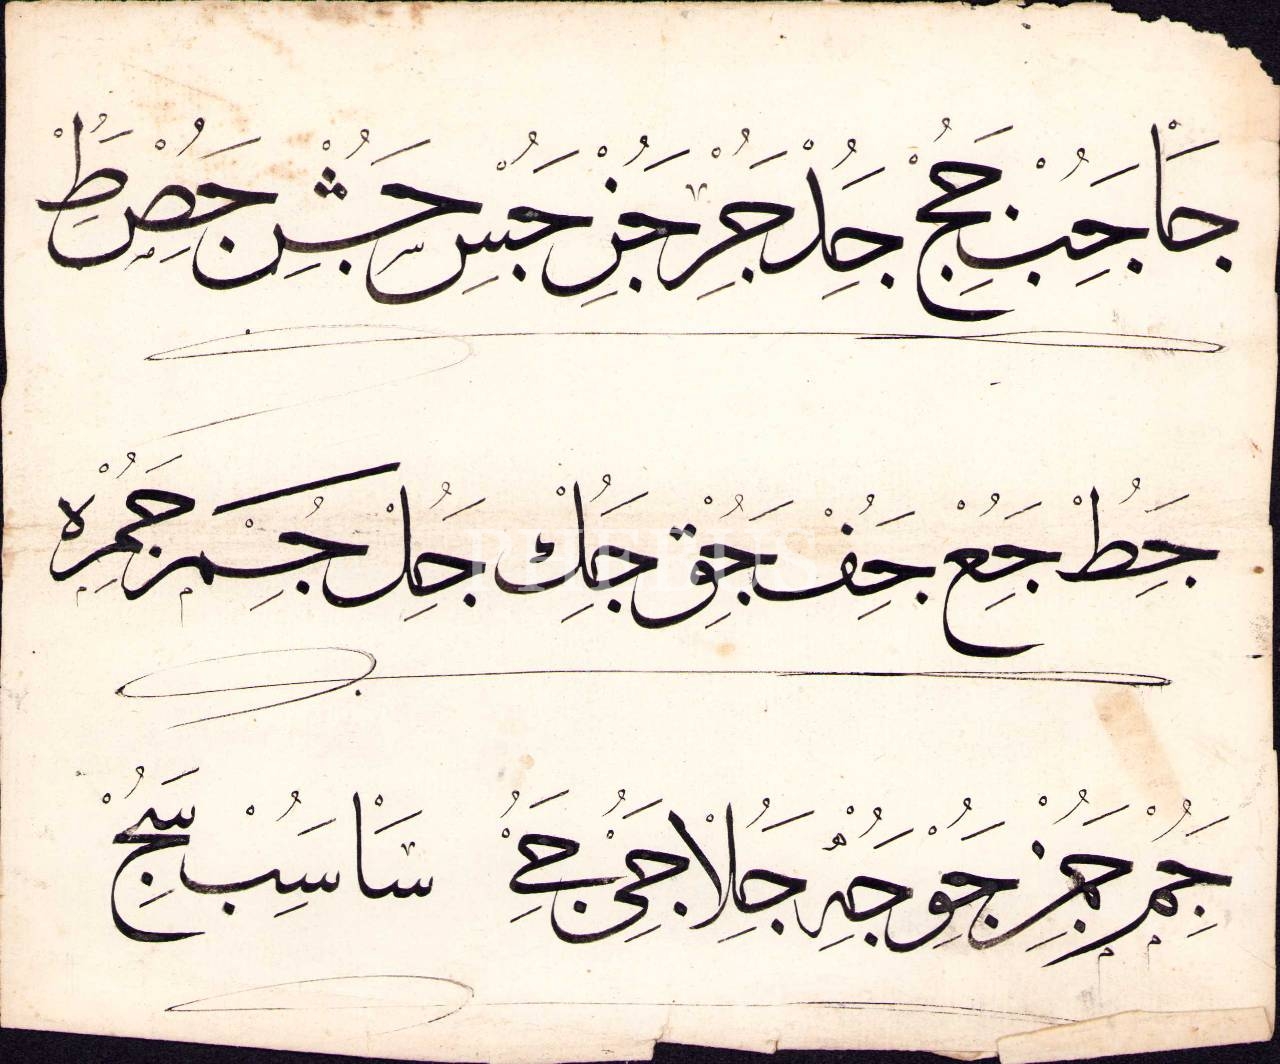 جَاْ جَِبُْ جَِجُْ جَِدُْ جَِرُْ جَِزُْ جَِسُْ جَِشُْ جَِصُْ طَِْ
جَِطُْ جَِعُْ جَِفُْ جَِقُْ جَِكُْ جَِلُْ جَِمُْ جَِمُرْهْ
جَِمُْرْ جَِمُْزْ جَِوُْ جَِهُْ جَِلُاْ جَِىُْ جَِےُْ سَاْ سَِبُْ سَِجُْ
PHEBUS